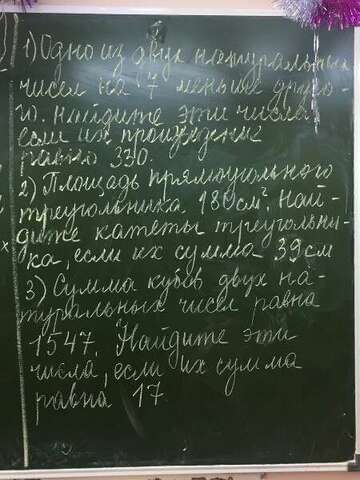 1) Одно из двух натуральных
чисел на 7 меньше друго-
го. Найдите эти числа
если их произведение
равно 330.
2) Площадь прямоугольного
треугольника 180 см². Най-
дите катеты треугольни-
ка, если их сумма 39 см
3) Сумма кубов двух на-
туральных чисел равна
1547. Найдите эти
числа, если их сумма
равна 17